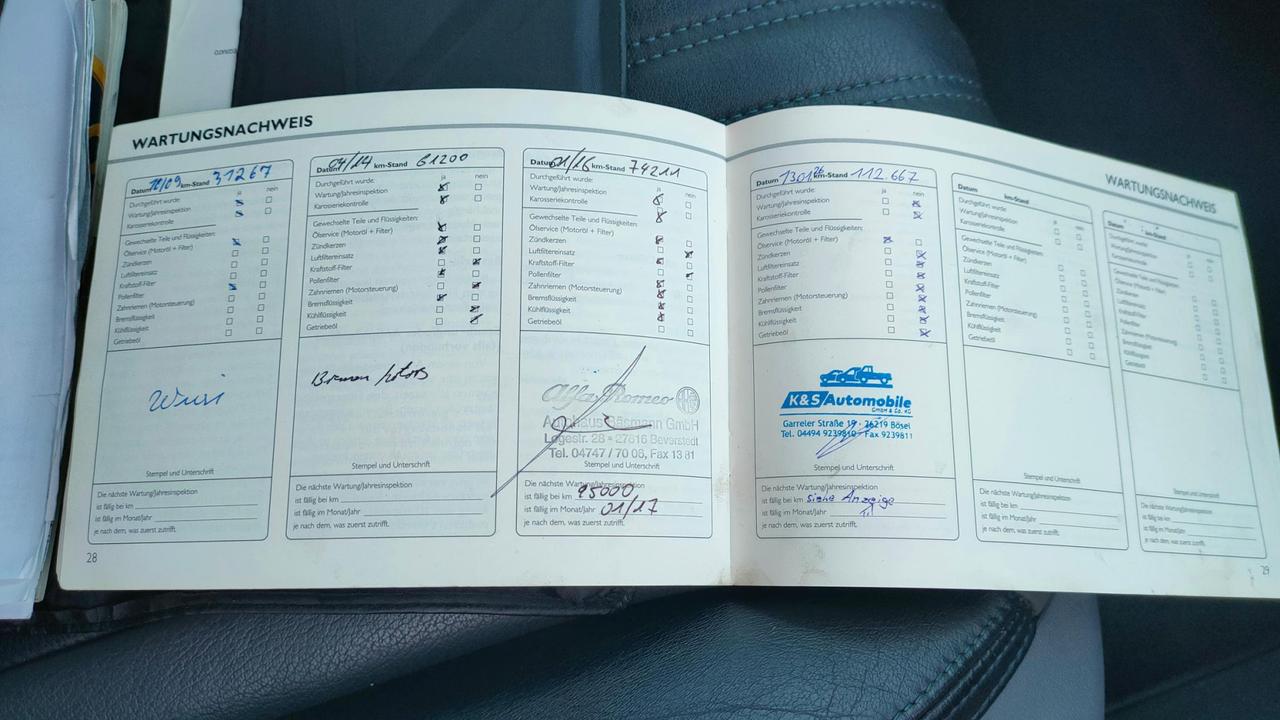 WARTUNGSNACHWEIS
Datum 10/09 km-Stand 31267
Durchgeführt wurde: ja nein
Wartung/Jahresinspektion
Karosseriekontrolle
Gewechselte Teile und Flüssigkeiten:
Ölservice (Motoröl + Filter)
Zündkerzen
Luftfiltereinsatz
Kraftstoff-Filter
Pollenfilter
Zahnriemen (Motorsteuerung)
Bremsflüssigkeit
Kühlflüssigkeit
Getriebeöl
Stempel und Unterschrift
Die nächste Wartung/Jahresinspektion
ist fällig bei km
ist fällig im Monat/Jahr
je nach dem, was zuerst zutrifft.
28
Datum 04/14 km-Stand 61200
Durchgeführt wurde: ja nein
Wartung/Jahresinspektion
Karosseriekontrolle
Gewechselte Teile und Flüssigkeiten:
Ölservice (Motoröl + Filter)
Zündkerzen
Luftfiltereinsatz
Kraftstoff-Filter
Pollenfilter
Zahnriemen (Motorsteuerung)
Bremsflüssigkeit
Kühlflüssigkeit
Getriebeöl
Bremen Motors
Stempel und Unterschrift
Die nächste Wartung/Jahresinspektion
ist fällig bei km
ist fällig im Monat/Jahr
je nach dem, was zuerst zutrifft.
Datum 01/16 km-Stand 74211
Durchgeführt wurde: ja nein
Wartung/Jahresinspektion
Karosseriekontrolle
Gewechselte Teile und Flüssigkeiten:
Ölservice (Motoröl + Filter)
Zündkerzen
Luftfiltereinsatz
Kraftstoff-Filter
Pollenfilter
Zahnriemen (Motorsteuerung)
Bremsflüssigkeit
Kühlflüssigkeit
Getriebeöl
Alfa Romeo
Autohaus GmbH
Logestr. 28 • 27616 Beverstedt
Tel. 04747 / 70 06, Fax 13 81
Stempel und Unterschrift
Die nächste Wartung/Jahresinspektion
ist fällig bei km 95000
ist fällig im Monat/Jahr 01/17
je nach dem, was zuerst zutrifft.
WARTUNGSNACHWEIS
Datum km-Stand 112.667
Durchgeführt wurde: ja nein
Wartung/Jahresinspektion
Karosseriekontrolle
Gewechselte Teile und Flüssigkeiten:
Ölservice (Motoröl + Filter)
Zündkerzen
Luftfiltereinsatz
Kraftstoff-Filter
Pollenfilter
Zahnriemen (Motorsteuerung)
Bremsflüssigkeit
Kühlflüssigkeit
Getriebeöl
K&S Automobile
GmbH & Co. KG
Garreler Straße 19 · 26219 Bösel
Tel. 04494 9239810 · Fax 9239811
Stempel und Unterschrift
Die nächste Wartung/Jahresinspektion
ist fällig bei km siehe Anzeige
ist fällig im Monat/Jahr
je nach dem, was zuerst zutrifft.
Datum km-Stand
Durchgeführt wurde: ja nein
Wartung/Jahresinspektion
Karosseriekontrolle
Gewechselte Teile und Flüssigkeiten:
Ölservice (Motoröl + Filter)
Zündkerzen
Luftfiltereinsatz
Kraftstoff-Filter
Pollenfilter
Zahnriemen (Motorsteuerung)
Bremsflüssigkeit
Kühlflüssigkeit
Getriebeöl
Stempel und Unterschrift
Die nächste Wartung/Jahresinspektion
ist fällig bei km
ist fällig im Monat/Jahr
je nach dem, was zuerst zutrifft.
Datum km-Stand
Durchgeführt wurde: ja nein
Wartung/Jahresinspektion
Karosseriekontrolle
Gewechselte Teile und Flüssigkeiten:
Ölservice (Motoröl + Filter)
Zündkerzen
Luftfiltereinsatz
Kraftstoff-Filter
Pollenfilter
Zahnriemen (Motorsteuerung)
Bremsflüssigkeit
Kühlflüssigkeit
Getriebeöl
Stempel und Unterschrift
Die nächste Wartung/Jahresinspektion
ist fällig bei km
ist fällig im Monat/Jahr
je nach dem, was zuerst zutrifft.
29